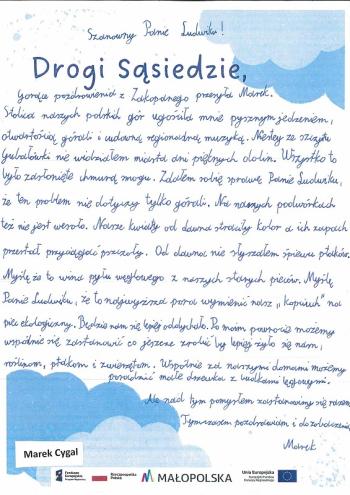 Szanowny Panie Ludwiku!
Drogi Sąsiedzie,
Gorące pozdrowienia z Zakopanego przesyła Marek.
Stolica naszych polskich gór ugościła mnie pysznym jedzeniem,
otwartością górali i cudowną regionalną muzyką. Niestety ze szczytu
Gubałówki nie widziałem miasta ani pięknych dolin. Wszystko to
było zasłonięte chmurą smogu. Zdałem sobie sprawę Panie Ludwiku,
że ten problem nie dotyczy tylko górali. Na naszych podwórkach
też nie jest wesoło. Nasze kwiaty od dawna straciły kolor a ich zapach
przestał przyciągać pszczoły. Od dawna nie słyszałem śpiewu ptaków.
Myślę że to wina pyłu węglowego z naszych starych pieców. Myślę
Panie Ludwiku, że to najwyższa pora wymienić nasz "kopciuch" na
piec ekologiczny. Będzie nam się lepiej oddychało. Po moim powrocie możemy
wspólnie się zastanowić co jeszcze zrobić by lepiej żyło się nam,
roślinom, ptakom i zwierzętom. Wspólnie za naszymi domami możemy
posadzić małe drzewka z
Ale nad tym pomysłem zastanowimy się razem.
Tymczasem pozdrawiam i do zobaczenia
Marek
Marek Cygal
Fundusze Europejskie
Rzeczpospolita Polska
MAŁOPOLSKA
Unia Europejska